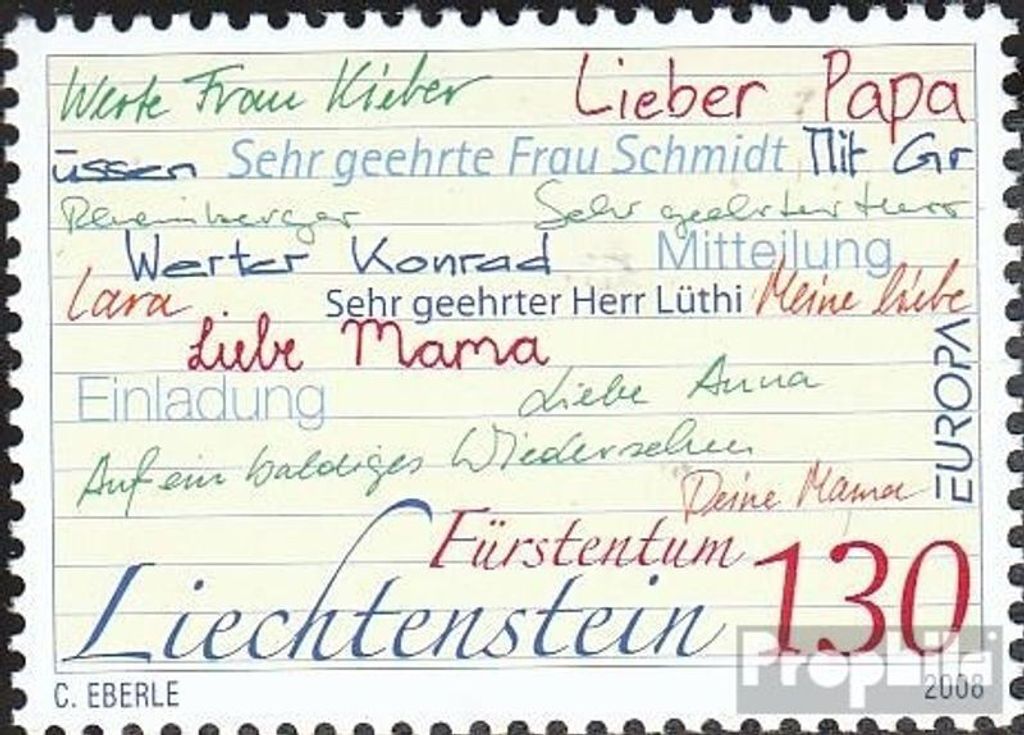 Werte Frau Kieber Lieber Papa
üssen Sehr geehrte Frau Schmidt Mit Gr
Rheinberger Sehr geehrter Herr
Werter Konrad Mitteilung
Lara Sehr geehrter Herr Lüthi Meine liebe
Liebe Mama
Einladung Liebe Anna
EUROPA
Auf ein baldiges Wiedersehen
Deine Mama
Fürstentum
Liechtenstein 130
C. EBERLE 2008
PropHila